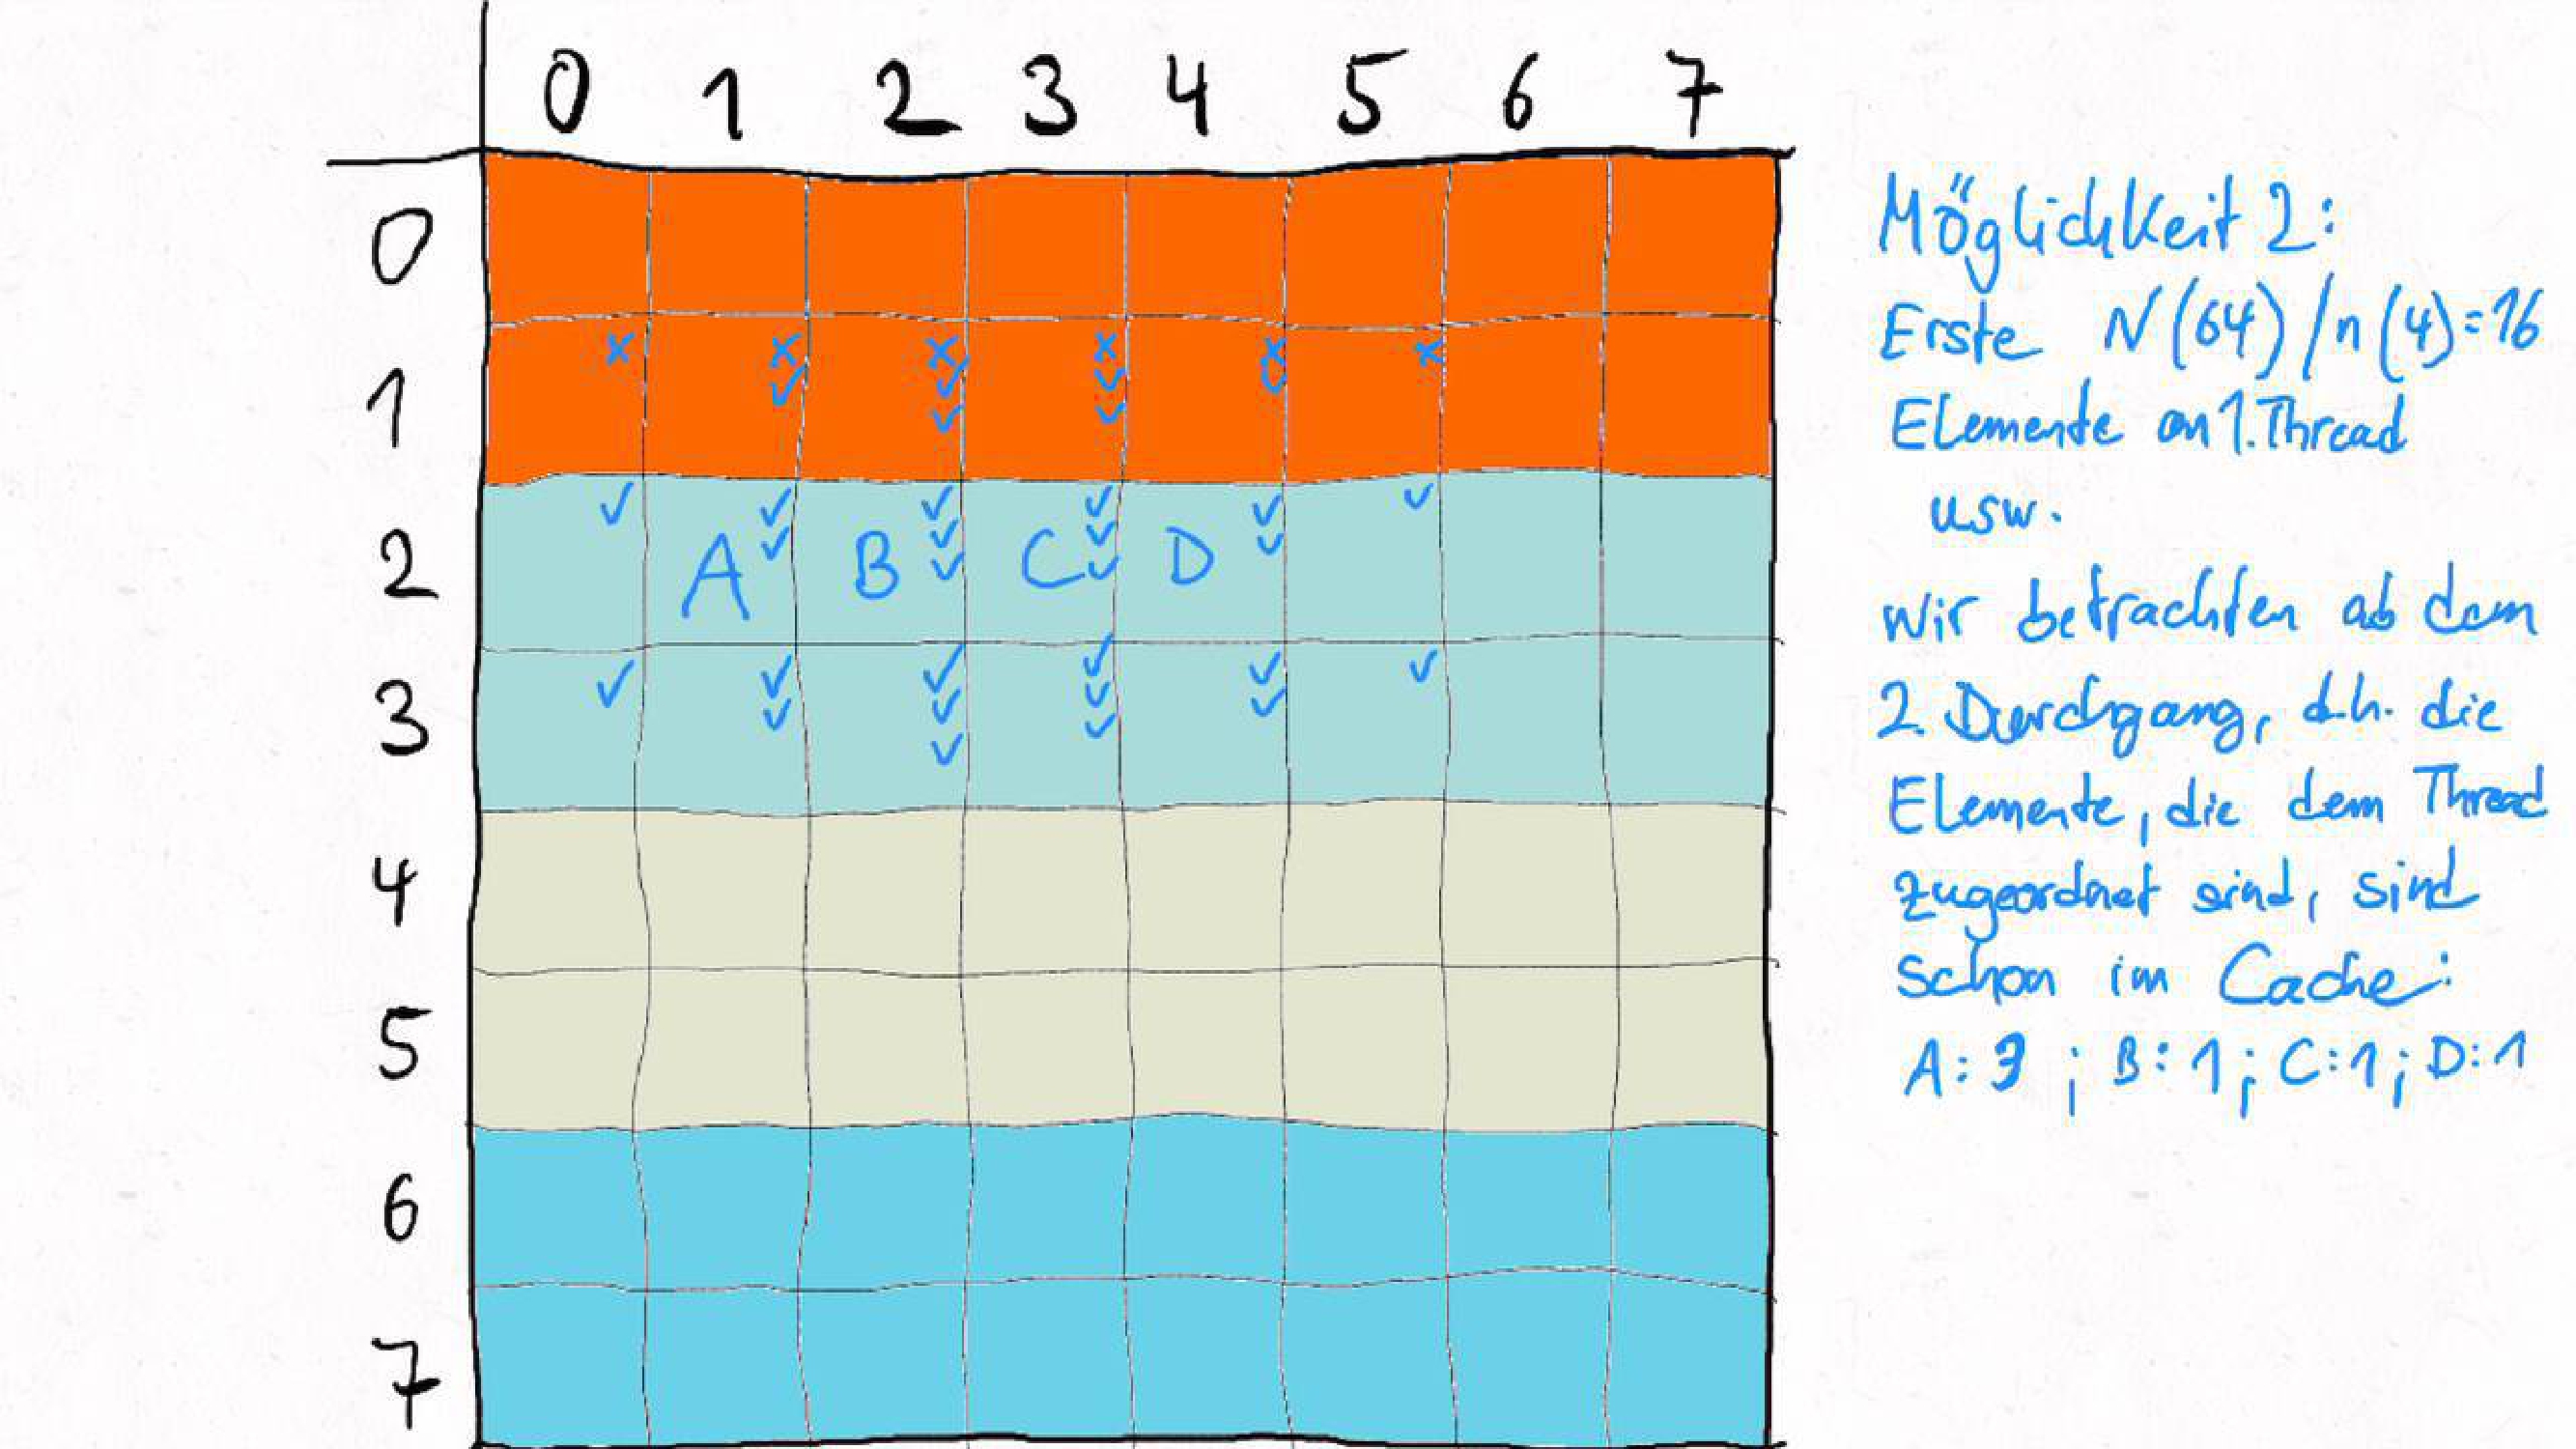 0 1 2 3 4 5 6 7
0
1
2 A B C D
3
4
5
6
7
Möglichkeit 2:
Erste N(64)/n(4)=16
Elemente an 1. Thread
usw.
Wir betrachten ab dem
2. Durchgang, d.h. die
Elemente, die dem Thread
zugeordnet sind, sind
schon im Cache:
A: 3 ; B: 1 ; C: 1 ; D: 1